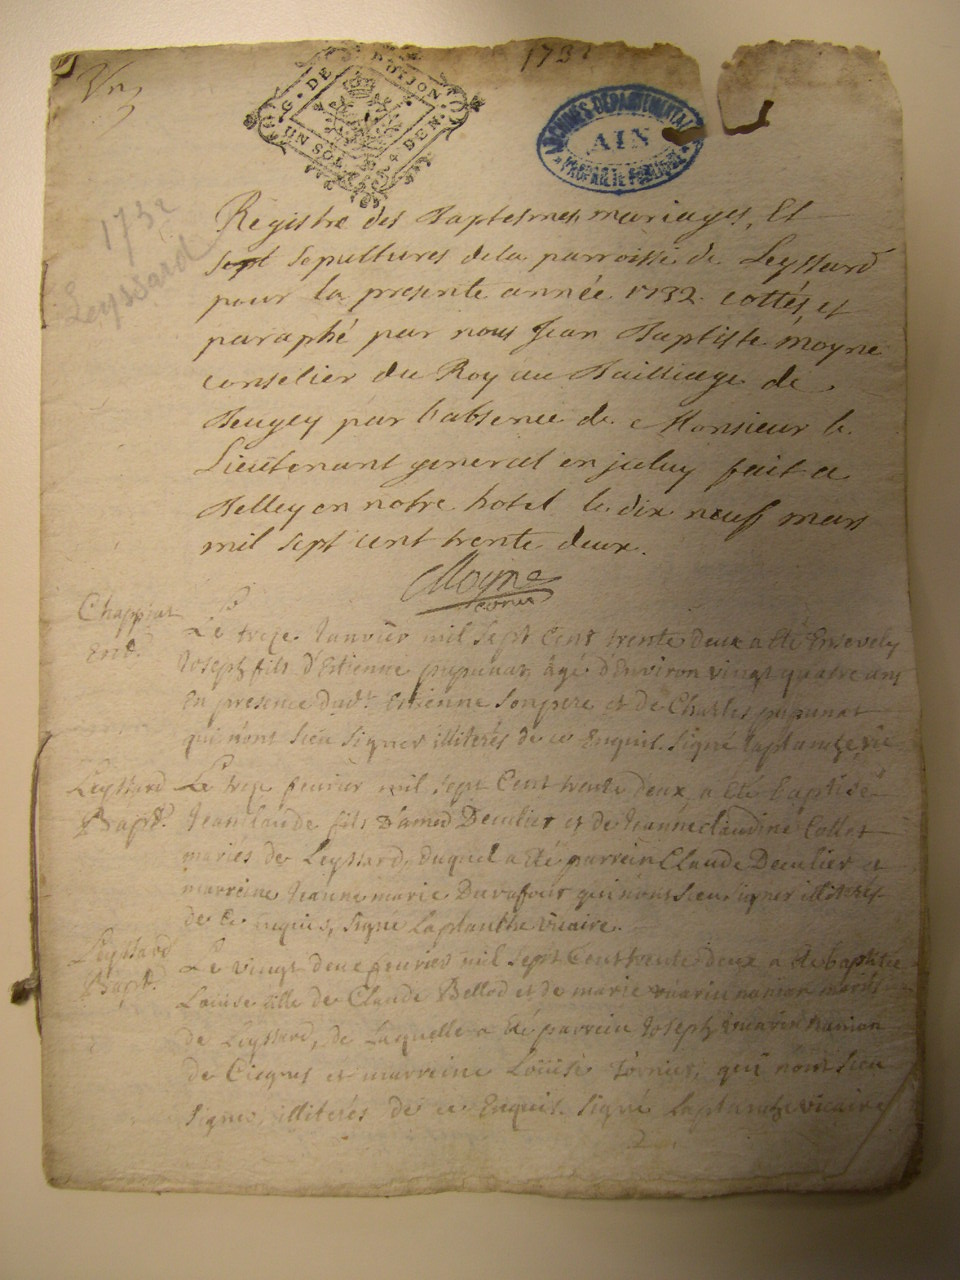 1732
Vn
G. DE DIJON
UN SOL 4 DEN.
ARCHIVES DEPARTEMENTALES
AIN
PROPRIETE PUBLIQUE
1732
Leyssard
Registre des Baptesmes, mariages, Et
sept sepultures de la parroisse de Leyssard
pour la presente année 1732. cottés, et
paraphé par nous Jean Baptiste moyne
conselier du Roy au Bailliage de
Beugey par l'absence de Monsieur le
Lieutenant general enjuluy fait a
Belley en notre hotel le dix neuf mars
mil sept cent trente deux.
Moyne
Chappiat
Ent.
Le treze Janvier mil sept Cent trente deux a été Ensevely
Joseph fils d'Etienne pupunat âgé d'Environ vingt quatre ans
En presence dudt. Etienne son pere et de Charles pupunat
qui n'ont sceu signer illiterés de ce Enquis. signé Laplanche vic
Leyssard
Bapt.
Le treze fevrier mil sept Cent trente deux a été baptisé
Jean Claude fils d'amed Decubier et de Jeanne Claudine Collet
mariés de Leyssard, duquel a été parrein Claude Decubier et
marreine Jeanne marie qui n'ont sceu signer illiterés
de ce enquis, signé Laplanche vicaire.
Leyssard
Bapt.
Le vingt deux fevrier mil sept Cent trente deux a été baptisée
Louise fille de Claude Bellod et de marie mariés
de Leyssard, de Laquelle a été parrein Joseph
de et marreine Loüise Tornier, qui n'ont sceu
signer, illiterés de ce Enquis. signé Laplanche vicaire